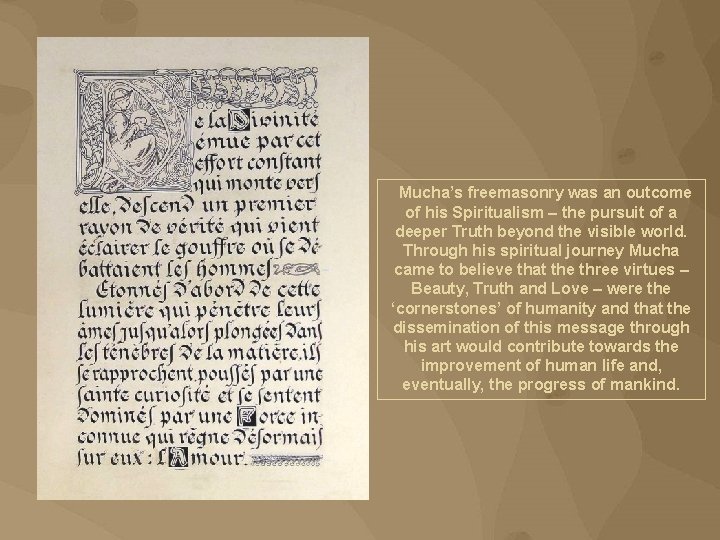 De la Divinité
émue par cet
effort constant
qui monte vers
elle, descend un premier
rayon de vérité qui vient
éclairer le gouffre où se dé
battaient les hommes
Etonnés d'abord de cette
lumière qui pénètre leurs
âmes jusqu'alors plongées dans
les ténèbres de la matière, ils
se rapprochent poussés par une
sainte curiosité et se sentent
dominés par une Force in
connue qui règne désormais
sur eux : l'Amour.
Mucha's freemasonry was an outcome
of his Spiritualism – the pursuit of a
deeper Truth beyond the visible world.
Through his spiritual journey Mucha
came to believe that the three virtues –
Beauty, Truth and Love – were the
‘cornerstones’ of humanity and that the
dissemination of this message through
his art would contribute towards the
improvement of human life and,
eventually, the progress of mankind.